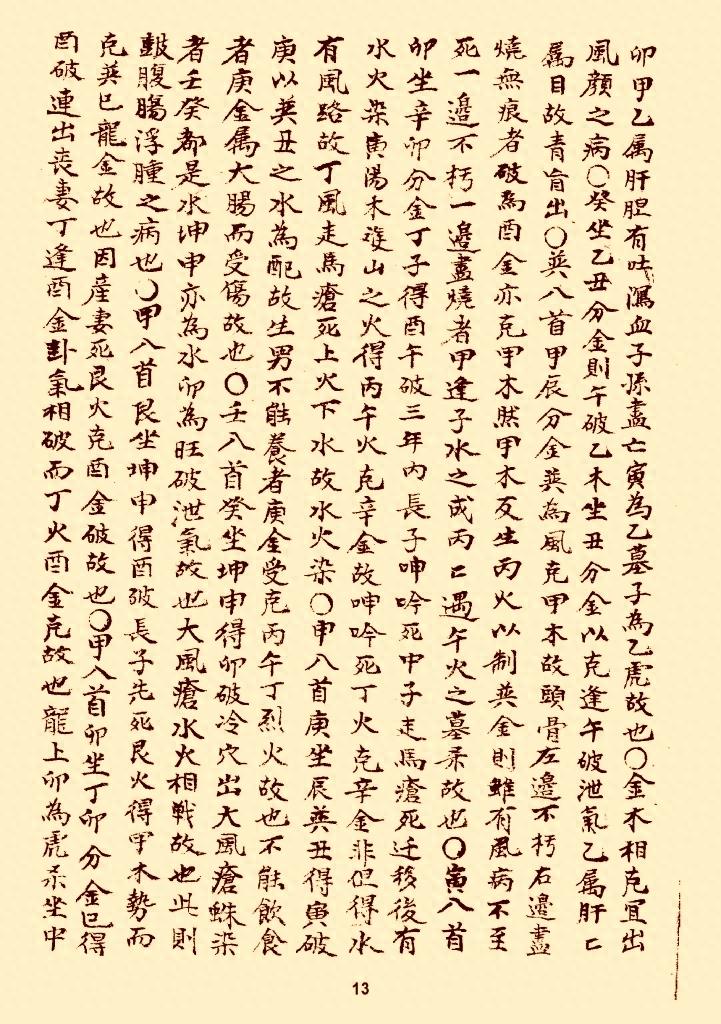 卯甲乙属肝胆有吐瀉血子孫盡亡寅為乙墓子為乙虎故也〇金木相克宜出
風顛之病〇癸坐乙丑分金則午破乙木坐丑分金以克逢午破泄氣乙属肝亡
属目故青盲出〇巽八首甲辰分金巽為風克甲木故頭骨左邉不朽右邉盡
燒無痕者破為酉金亦克甲木然甲木反生丙火以制巽金則雖有風病不至
死一邉不朽一邉盡燒者甲逢子水之或丙亡遇午火之墓杀故也〇寅八首
卯坐辛卯分金丁子得酉午破三年内長子呻吟死中子走馬瘡死迁移後有
水火染寅陽木雙山之火得丙午火克辛金故呻吟死丁火克辛金非但得水
有風路故丁風走馬瘡死上火下水故水火染〇甲八首庚坐辰巽丑得寅破
庚以巽丑之水為配故生男不能養者庚金受克丙午丁烈火故也不能飲食
者庚金属大腸而受傷故也〇壬八首癸坐坤申得卯破冷穴出大風瘡蛛染
者壬癸都是水坤申亦為水卯為旺破泄氣故也大風瘡水火相戦故也此則
皷腹腸浮腫之病也〇甲八首艮坐坤申得酉破長子先死艮火得甲木勢而
克巽巳龍金故也因産妻死艮火克酉金破故也〇甲八首卯坐丁卯分金巳得
酉破連出丧妻丁逢酉金卦氣相破而丁火酉金克故也龍上卯為虎杀坐中
13